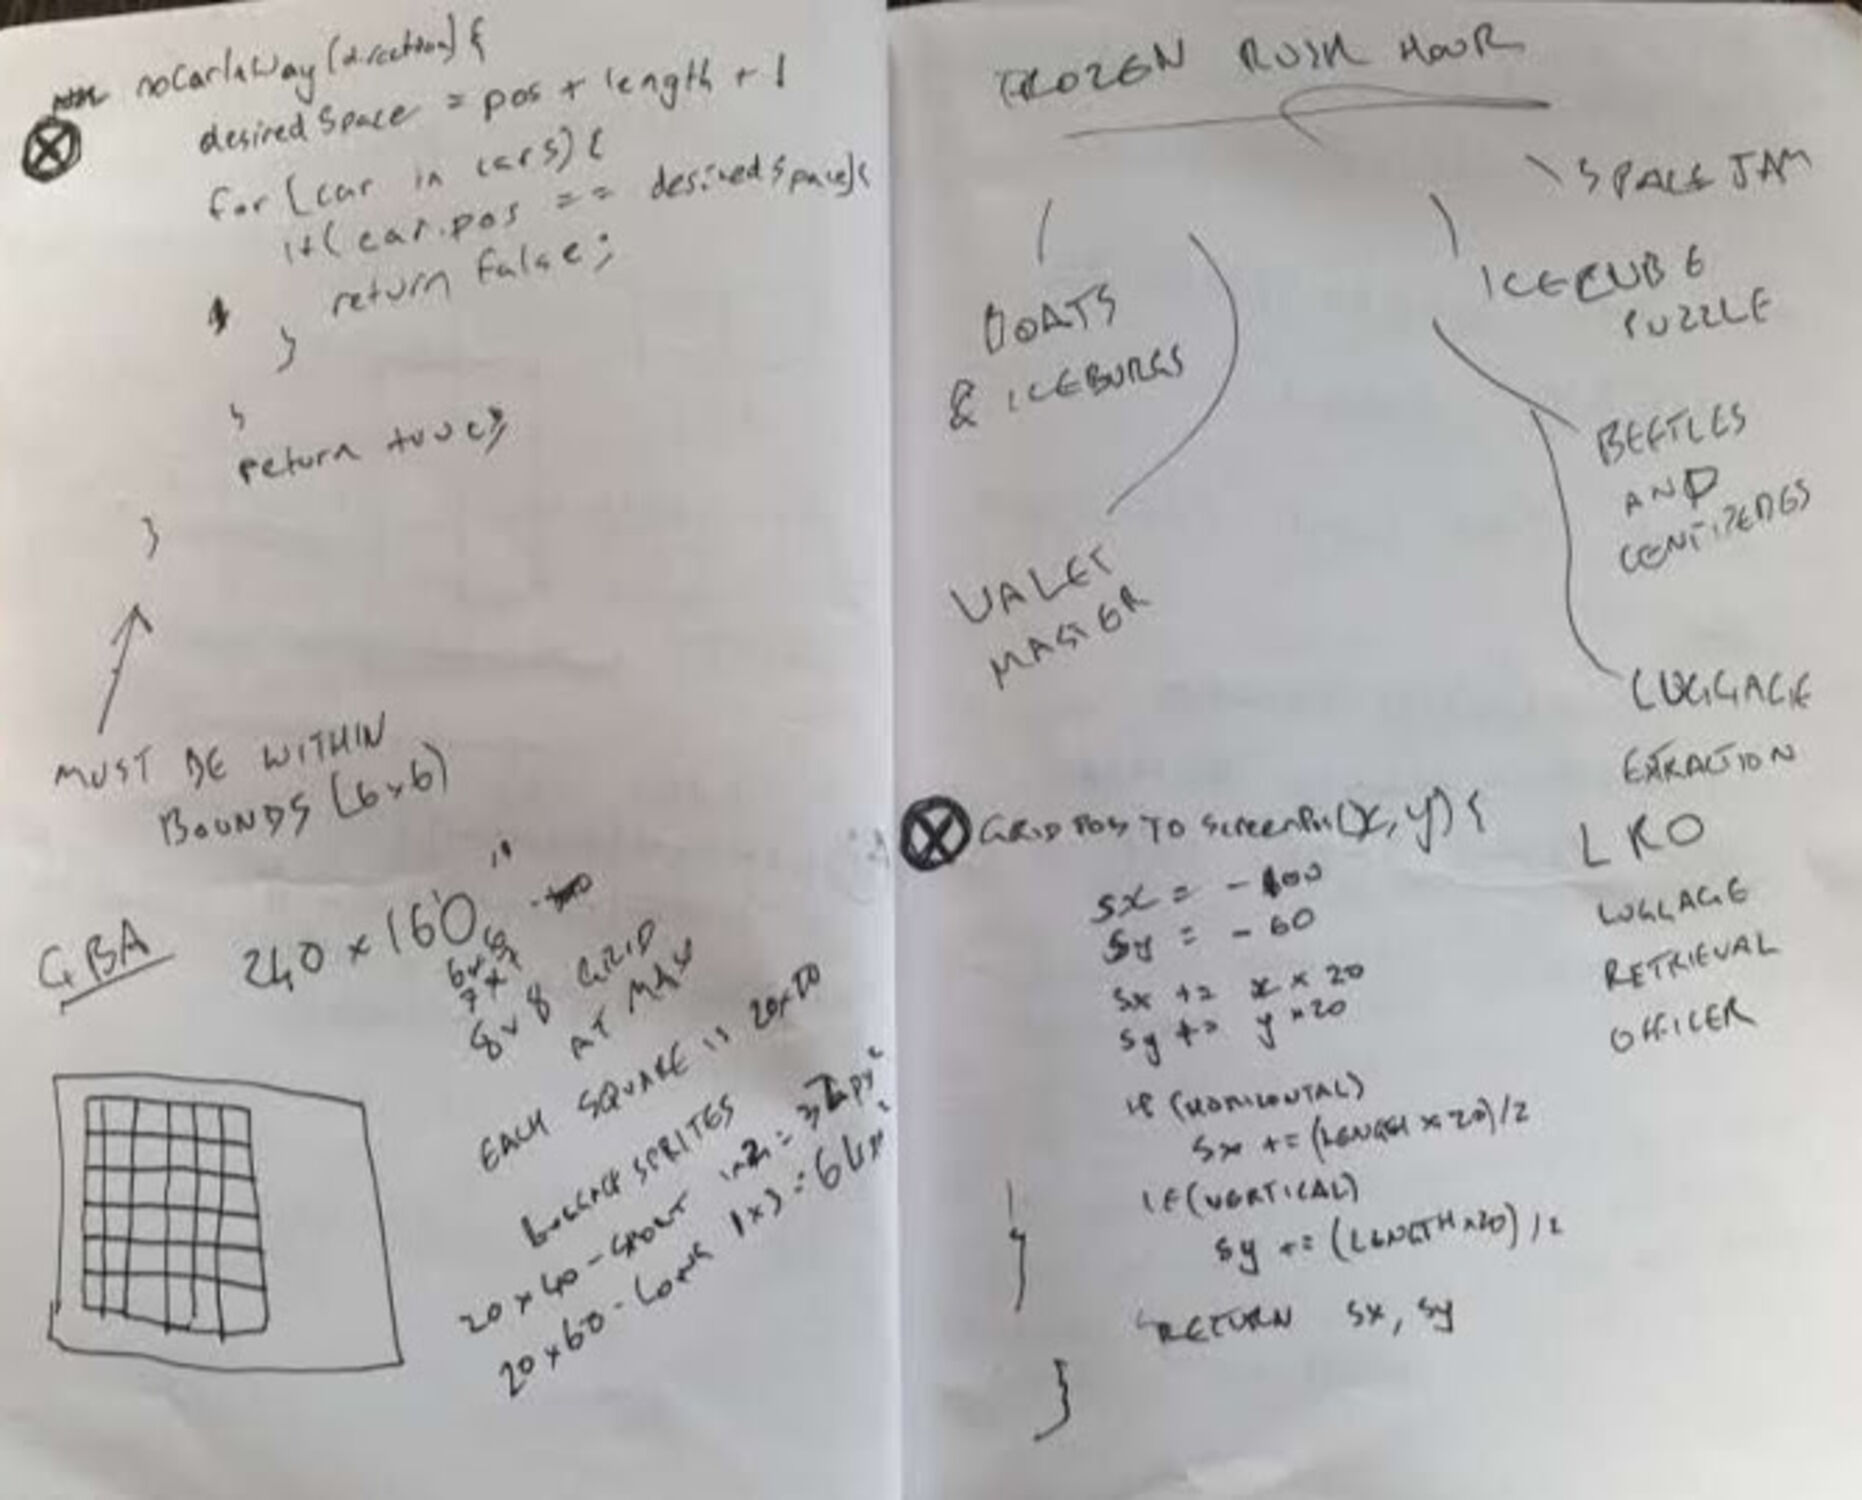 noCarInWay(direction) {
desiredSpace = pos + length + 1
for (car in cars) {
if( car.pos == desiredSpace) {
return false;
}
}
return true;
}
MUST BE WITHIN
BOUNDS (6x6)
GBA
240 x 160
6x6
7x7
8x8 GRID
AT MAX
EACH SQUARE IS 20x20
LUGGAGE SPRITES
20 x 40 - SHORT 1x2 = 32px²
20 x 60 - LONG 1x3 = 64px²
FROZEN RUSH HOUR
SPACE JAM
ICECUBE
PUZZLE
BOATS
& ICEBURGS
BEETLES
AND
CENTIPEDES
VALET
MASTER
LUGGAGE
EXTRACTION
LRO
LUGGAGE
RETRIEVAL
OFFICER
GRID POS TO ScreenPos(x, y) {
sx = - 100
sy = - 60
sx += x * 20
sy += y * 20
if (HORIZONTAL)
sx += (LENGTH x 20)/2
IF (VERTICAL)
sy += (LENGTH x 20) /2
RETURN sx, sy
}